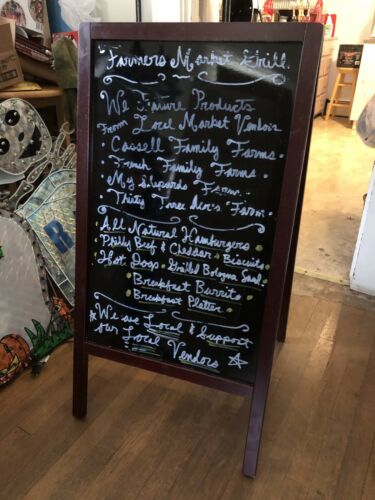 Farmers Market Grill.
We Feature Products
From Local Market Vendors
• Cassell Family Farms •
• French Family Farms •
• My Shepards Farm •
• Thirty Three Acre's Farm •
All Natural Hamburgers
Philly Beef & Cheddar • Biscuits
• Hot Dogs • Grilled Bologna Sand.
• Breakfast Burrito
Breakfast Platter
☆ We are Local & Support
our Local Vendors ☆